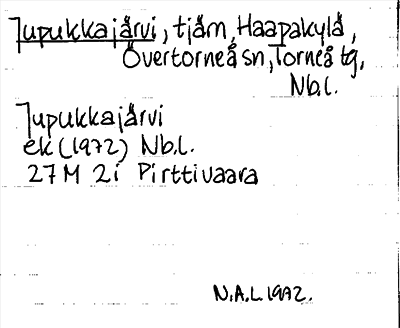 Jupukkajärvi, tjärn, Haapakylä,
Övertorneå sn, Torneå tg,
Nb.l.
Jupukkajärvi
ek (1972) Nb.l.
27 M 2i Pirttivaara
N.A.L. 1972.